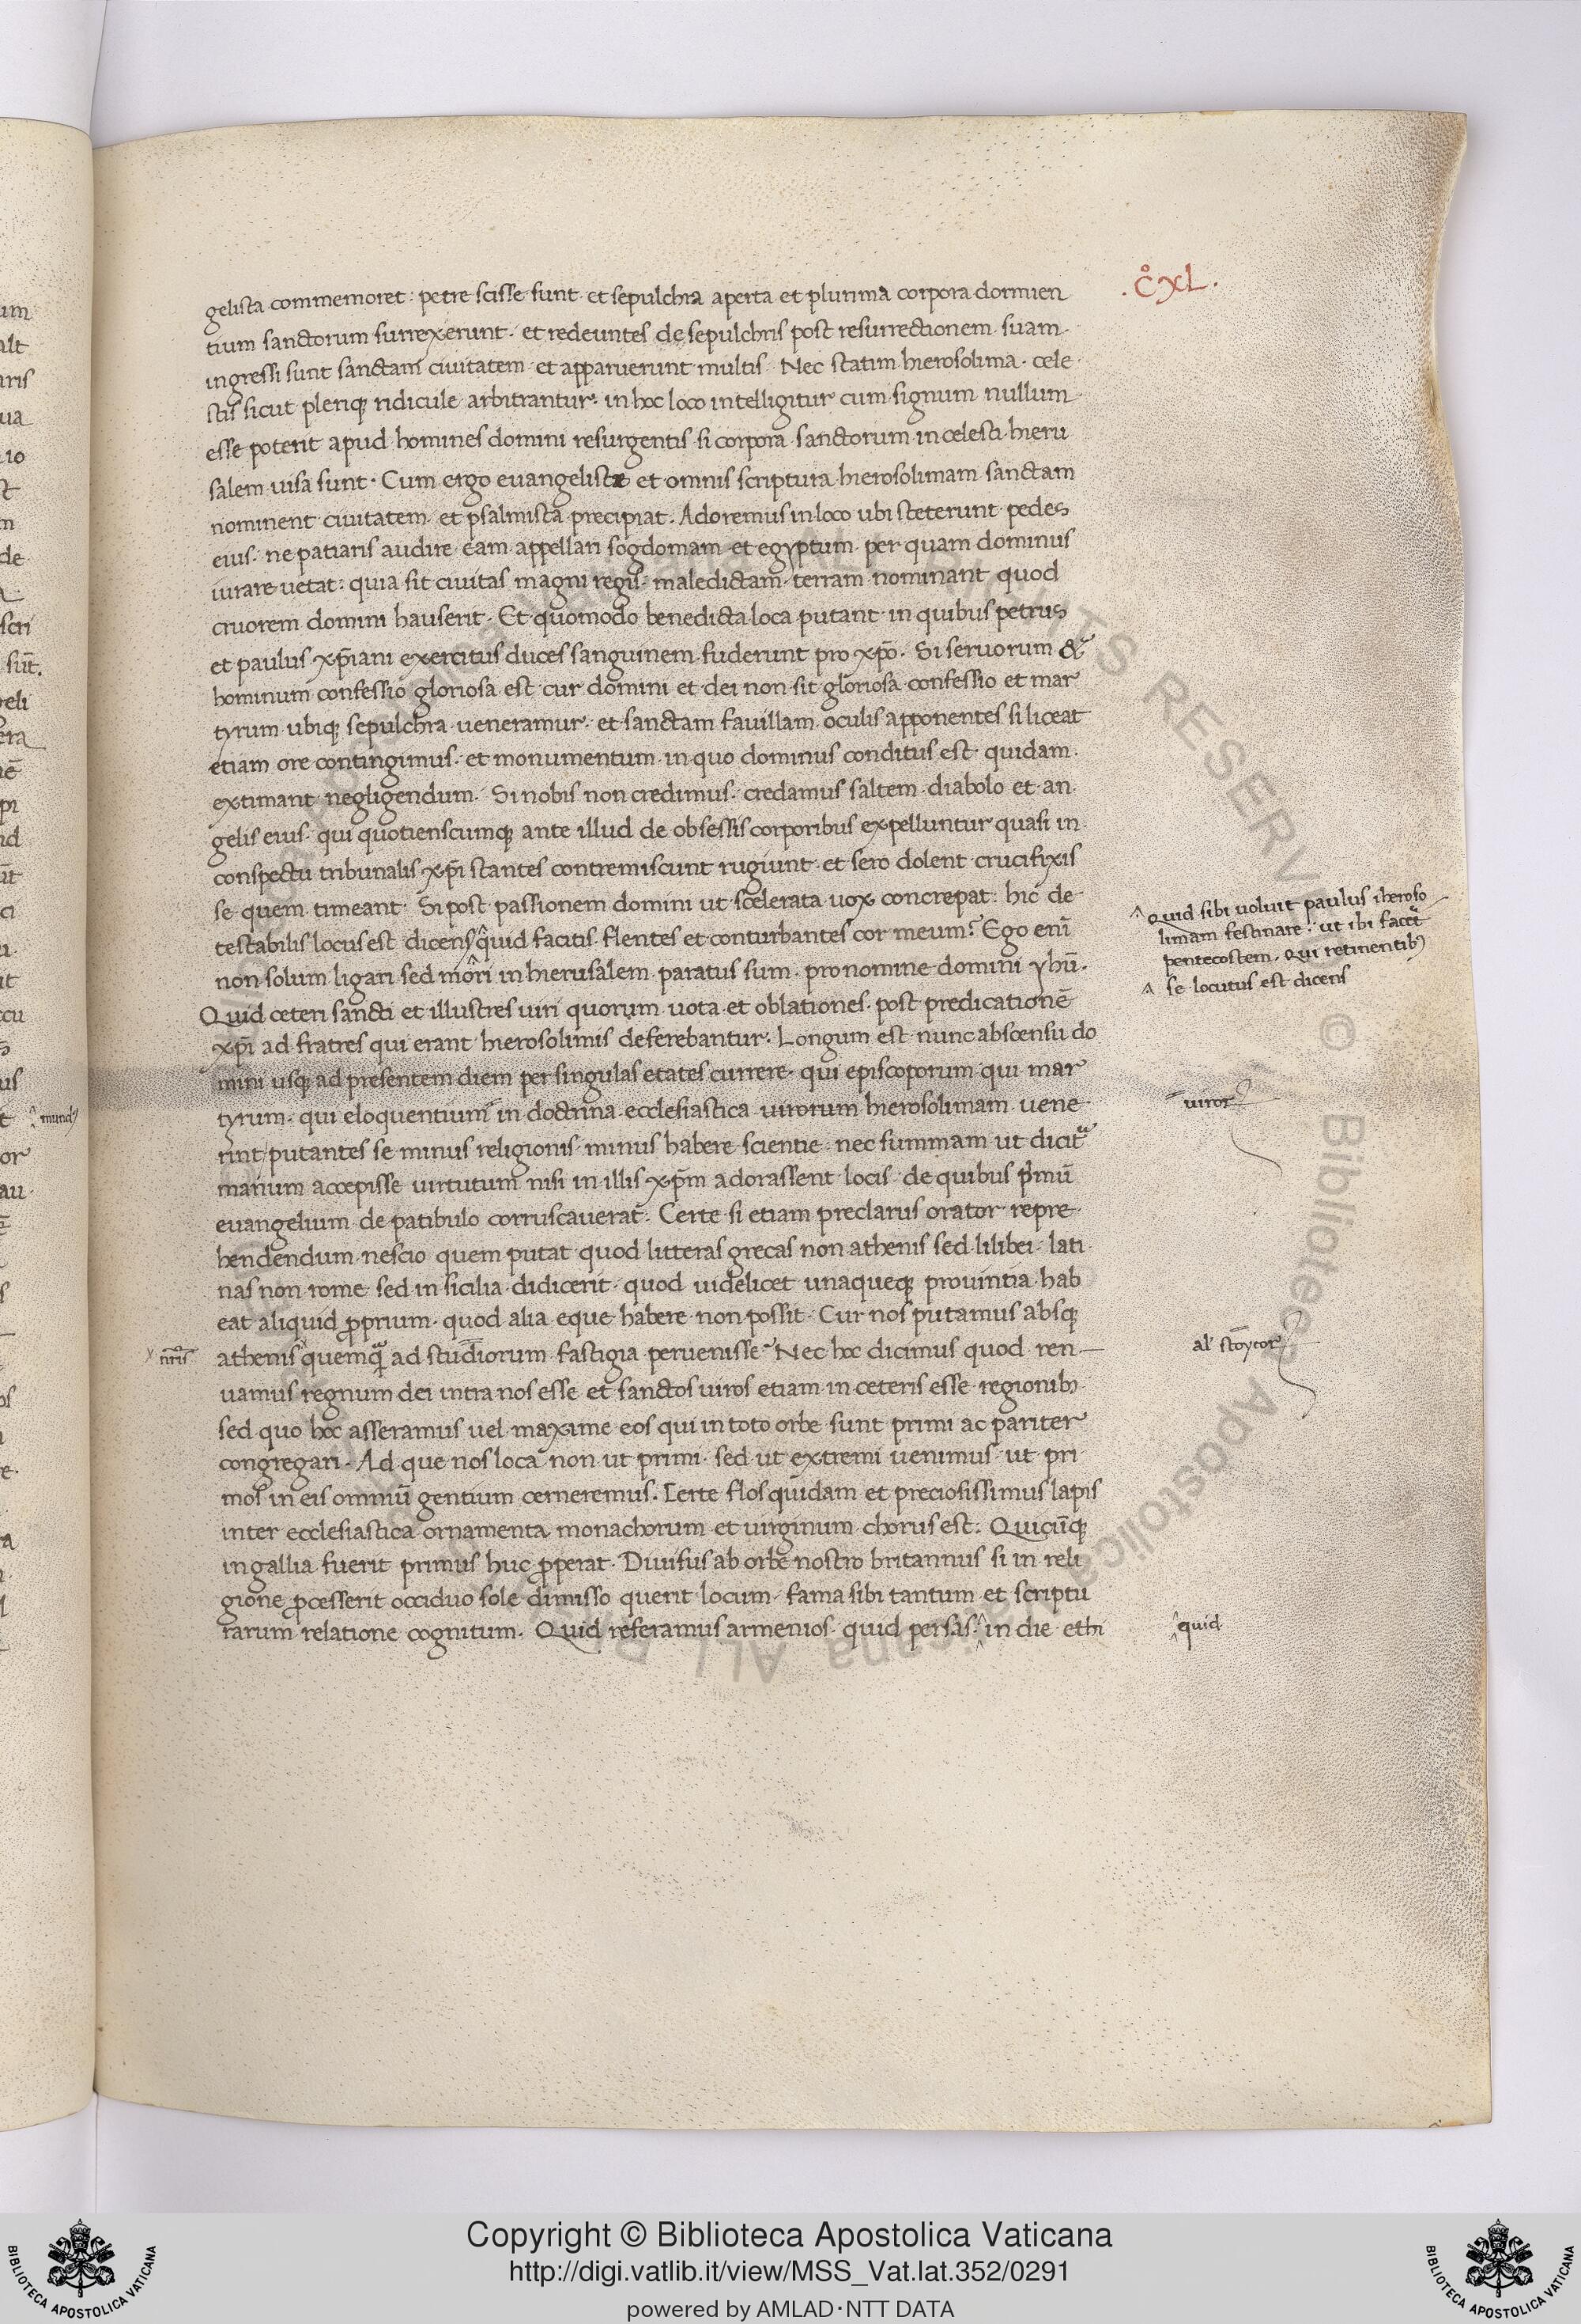 .C̊XL.
gelista commemoret: petre scisse sunt et sepulchra aperta et plurima corpora dormien
tium sanctorum surrexerunt. et redeuntes de sepulchris post resurrectionem suam.
ingressi sunt sanctam ciuitatem et apparuerunt multis. Nec statim hierosolima cele
stis sicut pleriq; ridicule arbitrantur. in hoc loco intelligitur cum signum nullum
esse poterit apud homines domini resurgentis si corpora sanctorum in celesti hieru
salem uisa sunt. Cum ergo euangeliste et omnis scriptura hierosolimam sanctam
nominent ciuitatem. et psalmista precipiat. Adoremus in loco ubi steterunt pedes
eius. ne patiaris audire eam appellari sogdomam et egyptum. per quam dominus
iurare uetat: quia sit ciuitas magni regis. maledictam terram nominant quod
cruorem domini hauserit. Et quomodo benedicta loca putant in quibus petrus
et paulus xp̄iani exercitus duces sanguinem fuderunt pro xp̄o. Si seruorum &
hominum confessio gloriosa est cur domini et dei non sit gloriosa confessio et mar
tyrum ubiq; sepulchra ueneramur. et sanctam fauillam oculis apponentes si liceat
etiam ore contingimus. et monumentum in quo dominus conditus est quidam.
extimant negligendum. Si nobis non credimus. credamus saltem diabolo et an
gelis eius. qui quotienscumq; ante illud de obsessis corporibus expelluntur quasi in
conspectu tribunalis xp̄i stantes contremiscunt rugiunt et sero dolent crucifixis
se quem timeant. Si post passionem domini ut scelerata uox concrepat: hic de
testabilis locus est dicens quid facitis flentes et conturbantes cor meum? Ego eni̅
non solum ligari sed mori in hierusalem paratus sum. pro nomine domini yhu̅.
^ quid sibi uoluit paulus iheroso
limam festinare: ut ibi facet
pentecostem. Qui retinentib;
^ se locutus est dicens
Quid ceteri sancti et illustres uiri quorum uota et oblationes. post predicatione̅
xp̄i ad fratres qui erant hierosolimis deferebantur. Longum est nunc abscensu do
mini usq; ad presentem diem per singulas etates currere. qui episcoporum qui mar
tyrum. qui eloquentium in doctrina ecclesiastica uirorum hierosolimam uene
uiror
rint putantes se minus religionis minus habere scientie nec summam ut dicit
manum accepisse uirtutum nisi in illis xp̄m adorassent locis de quibus primu̅
euangelium de patibulo corruscauerat. Certe si etiam preclarus orator repre
hendendum nescio quem putat quod litteras grecas non athenis sed lilibei lati
nas non rome sed in sicilia didicerit. quod uidelicet unaqueq; prouintia hab
eat aliquid proprium. quod alia eque habere non possit. Cur nos putamus absq;
nr̅is
athenis quemq̃ ad studiorum fastigia peruenisse? Nec hoc dicimus quod ren
al' stoycor
uamus regnum dei intra nos esse et sanctos uiros etiam in ceteris esse regionib;
sed quo hoc asseramus uel maxime eos qui in toto orbe sunt primi ac pariter
congregari. Ad que nos loca non ut primi. sed ut extremi uenimus ut pri
mos in eis omniu̅ gentium cerneremus. Certe flos quidam et preciosissimus lapis
inter ecclesiastica ornamenta monachorum et uirginum chorus est. Quicu̅q;
in gallia fuerit primus huc properat. Diuisus ab orbe nostro britannus si in reli
gione processerit occiduo sole dimisso querit locum fama sibi tantum et scriptu
rarum relatione cognitum. Quid referamus armenios quid persas ^ in die ethi
^ quid
Copyright © Biblioteca Apostolica Vaticana
http://digi.vatlib.it/view/MSS_Vat.lat.352/0291
powered by AMLAD·NTT DATA